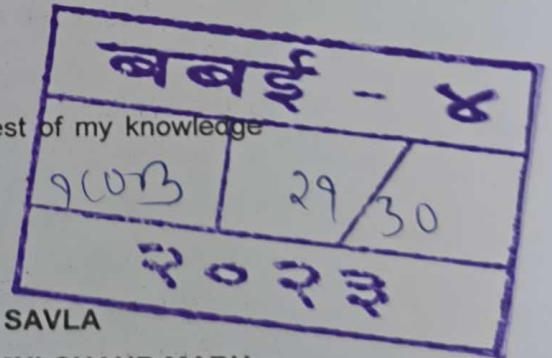 बबई - ४
est of my knowledge
29/30
२०२३
SAVLA